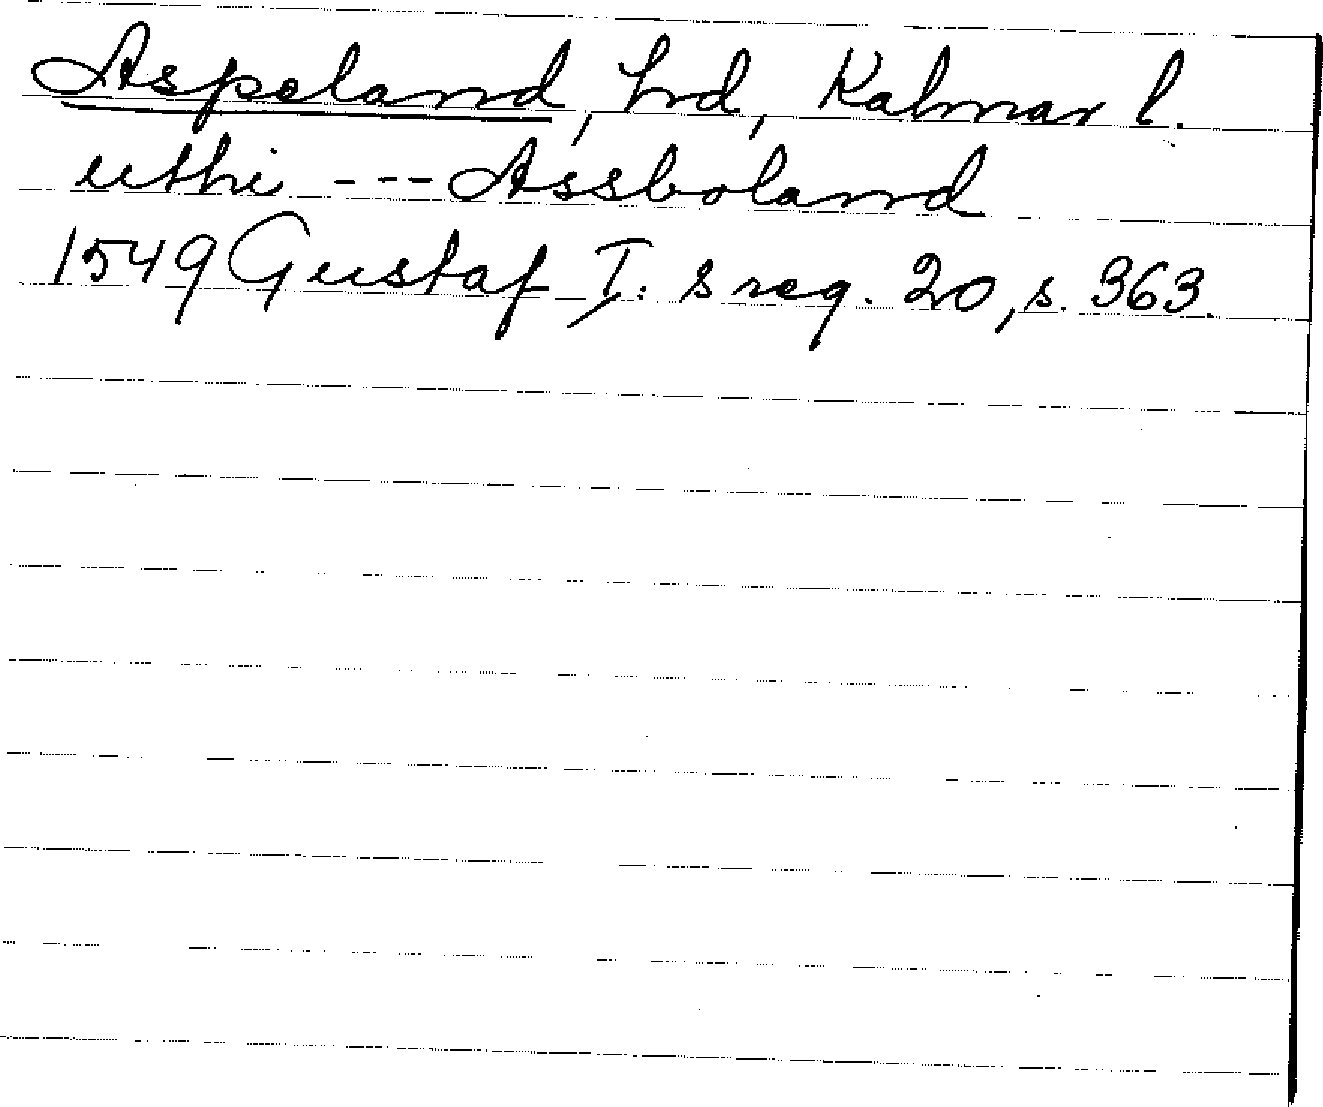 Aspeland, hd, Kalmar l.
uthi --- Assboland
1549 Gustaf I:s reg. 20, s. 363.